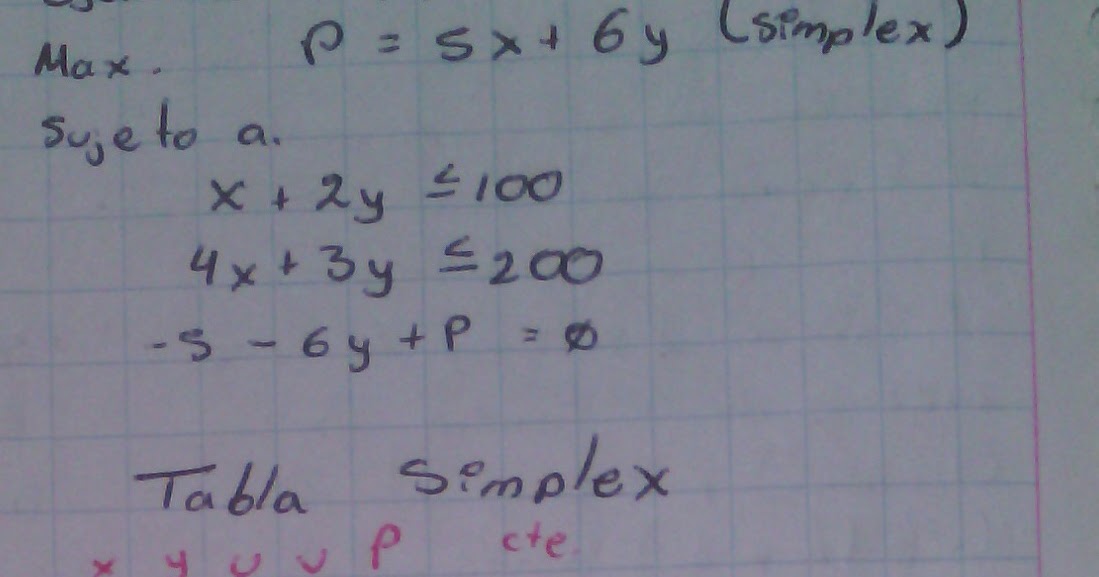 Max. P = 5x + 6y (simplex)
Sujeto a.
x + 2y ≤ 100
4x + 3y ≤ 200
-5 - 6y + P = 0
Tabla Simplex
x y u v P cte.